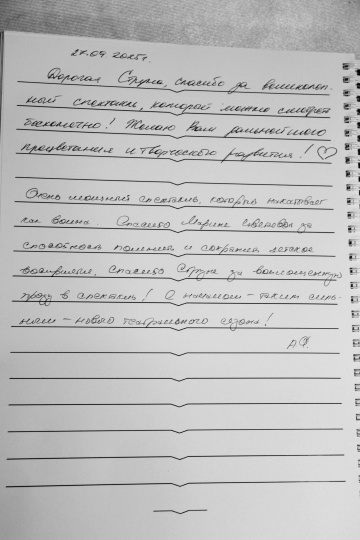 27.09.2025г.
Дорогая Струна, спасибо за великолеп-
ный спектакль, который можно смотреть
бесконечно! Желаю Вам дальнейшего
процветания и творческого развития! ♡
Очень мощный спектакль, который накатывает
как волна. Спасибо Марине Цветаевой за
способность помнить и сохранить детское
восприятие, спасибо Струне за воплощённую
прозу в спектакль! С началом – таким силь-
ным – нового театрального сезона!
А.Ф.